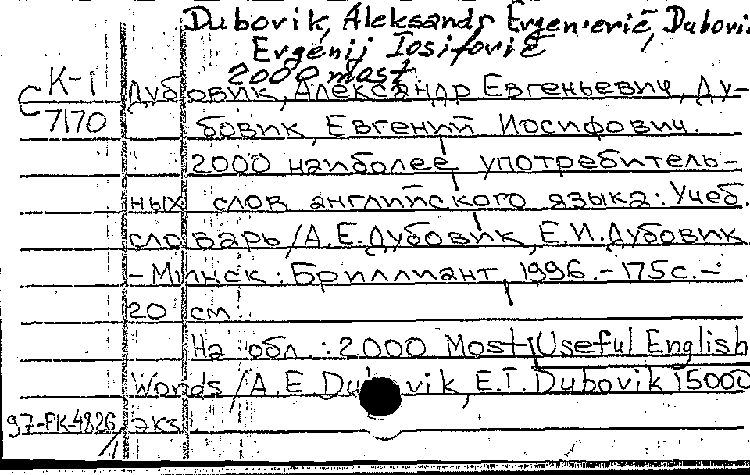 Dubovik, Aleksandr Evgen'evič, Dubovi
Evgenij Iosifovič
2000 most
К-1 Дубовик, Александр Евгеньевич, Ду-
С 7170 бовик, Евгений Иосифович.
2000 наиболее употребитель-
ных слов английского языка: Учеб.
словарь / А.Е. Дубовик, Е.И. Дубовик
- Минск: Бриллиант, 1996. - 175 с. -
20 см.
На обл.: 2000 Most Useful English
Words / A.E. Dubovik, E.I. Dubovik 15000
97-PK-4826 экз